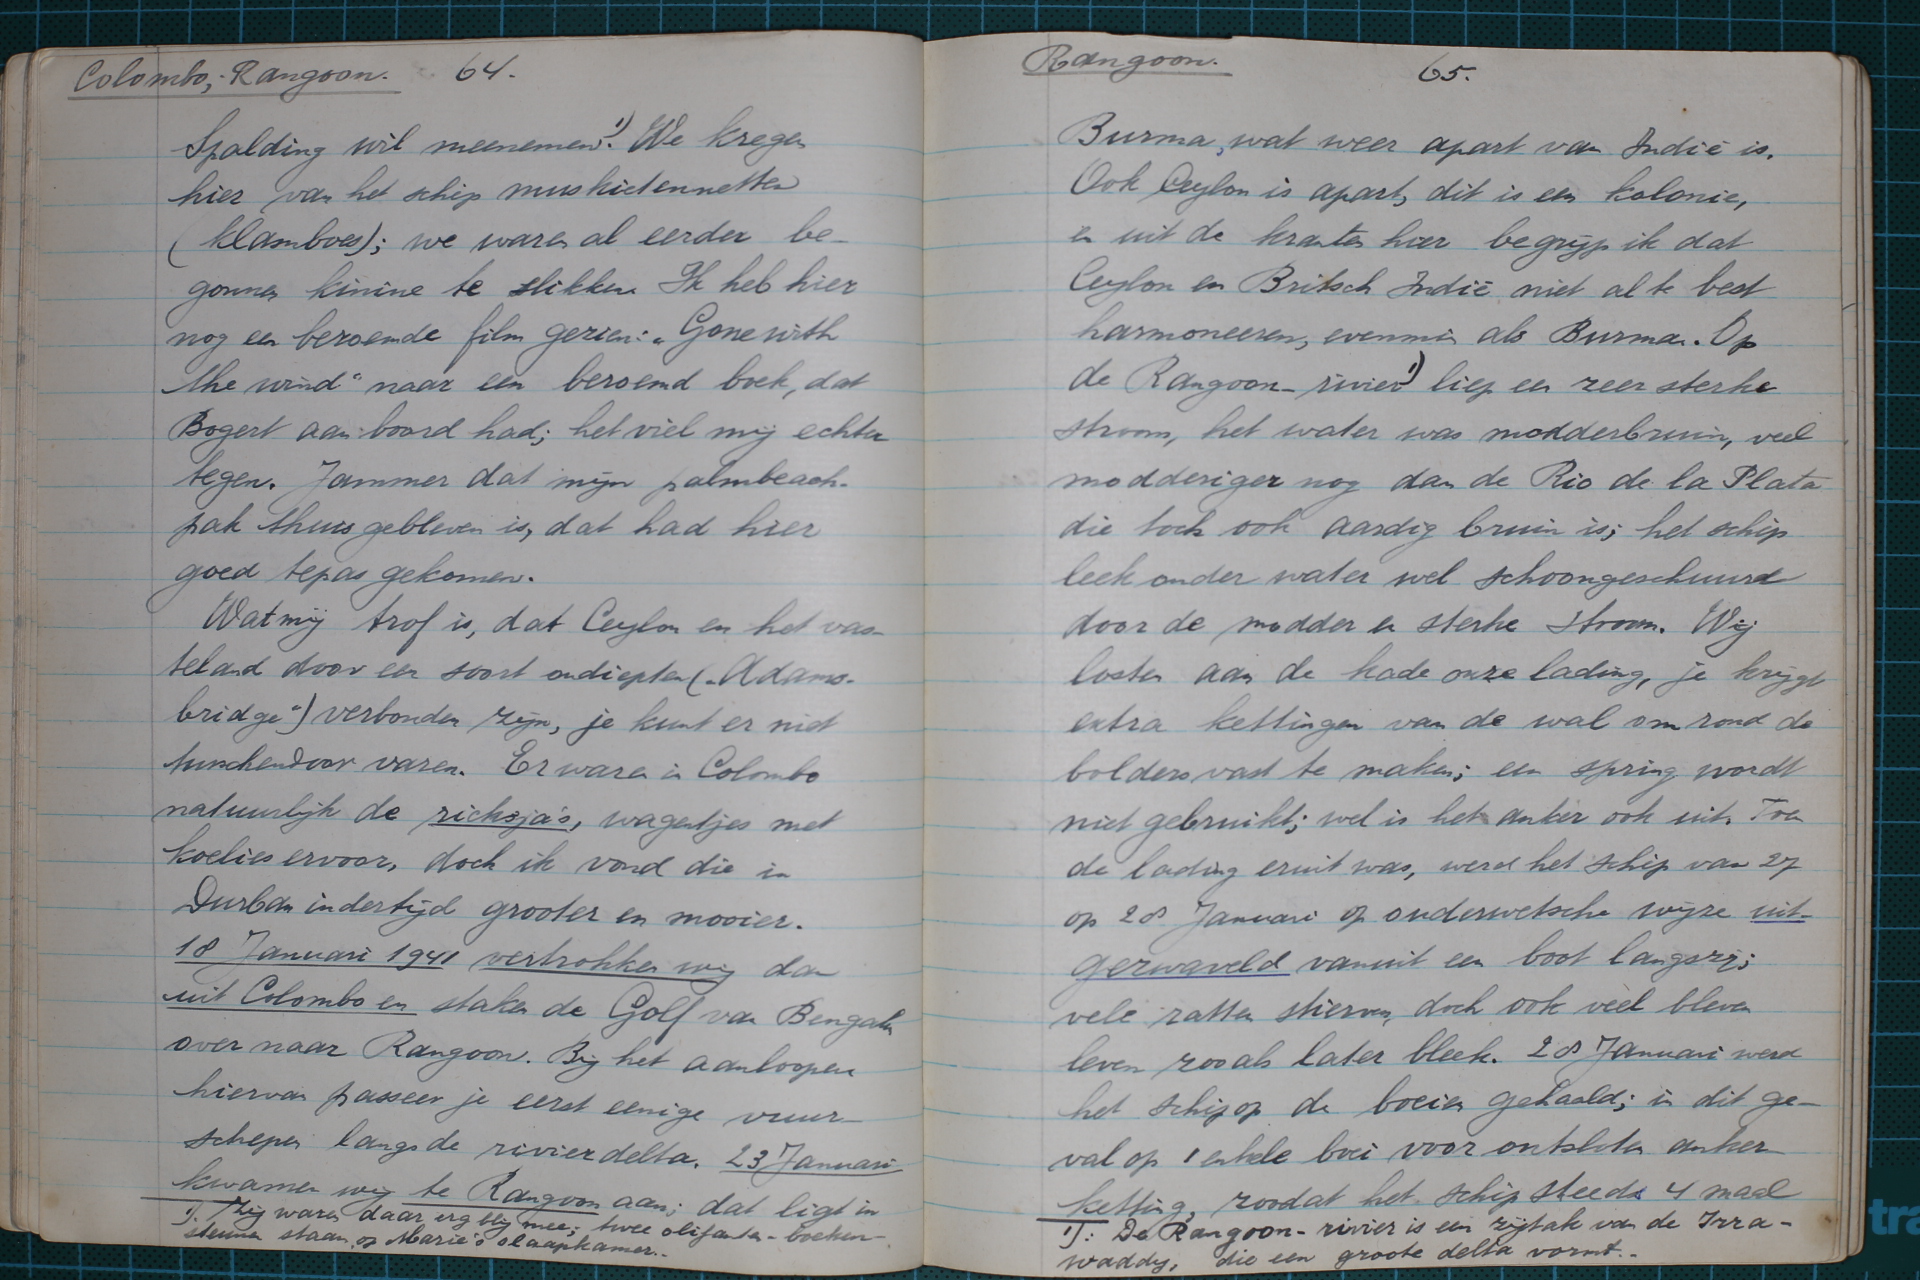 Colombo,-Rangoon. 64.
Spalding wil meenemen.¹) We kregen
hier van het schip muskietennetten
(klamboes); we waren al eerder be-
gonnen kinine te slikken. Ik heb hier
nog een beroemde film gezien: „Gone with
the wind" naar een beroemd boek, dat
Bogert aan boord had; het viel mij echter
tegen. Jammer dat mijn palmbeach-
pak thuis gebleven is, dat had hier
goed te pas gekomen.
Wat mij trof is, dat Ceylon en het vas-
teland door een soort ondiepten („Adams-
bridge") verbonden zijn, je kunt er niet
tusschendoor varen. Er waren in Colombo
natuurlijk de ricksja's, wagentjes met
koelies ervoor, doch ik vond die in
Durban indertijd grooter en mooier.
18 Januari 1941 vertrokken wij dan
uit Colombo en staken de Golf van Bengalen
over naar Rangoon. Bij het aanloopen
hiervan passeer je eerst eenige vuur-
schepen langs de rivierdelta. 23 Januari
kwamen wij te Rangoon aan; dat ligt in
¹). Zij waren daar erg blij mee; twee olifanten-boeken-
steunen staan op Marie's slaapkamer.-
Rangoon. 65.
Burma, wat weer apart van Indië is.
Ook Ceylon is apart, dit is een kolonie,
en uit de kranten hier begrijp ik dat
Ceylon en Britsch Indië niet al te best
harmoneeren, evenmin als Burma. Op
de Rangoon-rivier¹) liep een zeer sterke
stroom, het water was modderbruin, veel
modderiger nog dan de Rio de la Plata
die toch ook aardig bruin is; het schip
leek onder water wel schoongeschuurd
door de modder en sterke stroom. Wij
losten aan de kade onze lading, je krijgt
extra kettingen van de wal om rond de
bolders vast te maken; een spring wordt
niet gebruikt; wel is het anker ook uit. Toen
de lading eruit was, werd het schip van 27
op 28 Januari op ouderwetsche wijze uit-
gezwaveld vanuit een boot langszij;
vele ratten stierven, doch ook véél bleven
leven zooals later bleek. 28 Januari werd
het schip op de boeien gehaald; in dit ge-
val op 1 enkele boei voor ontsloten anker
ketting, zoodat het schip steeds 4 maal
¹): De Rangoon-rivier is een zijtak van de Irra-
waddy, die een groote delta vormt.-